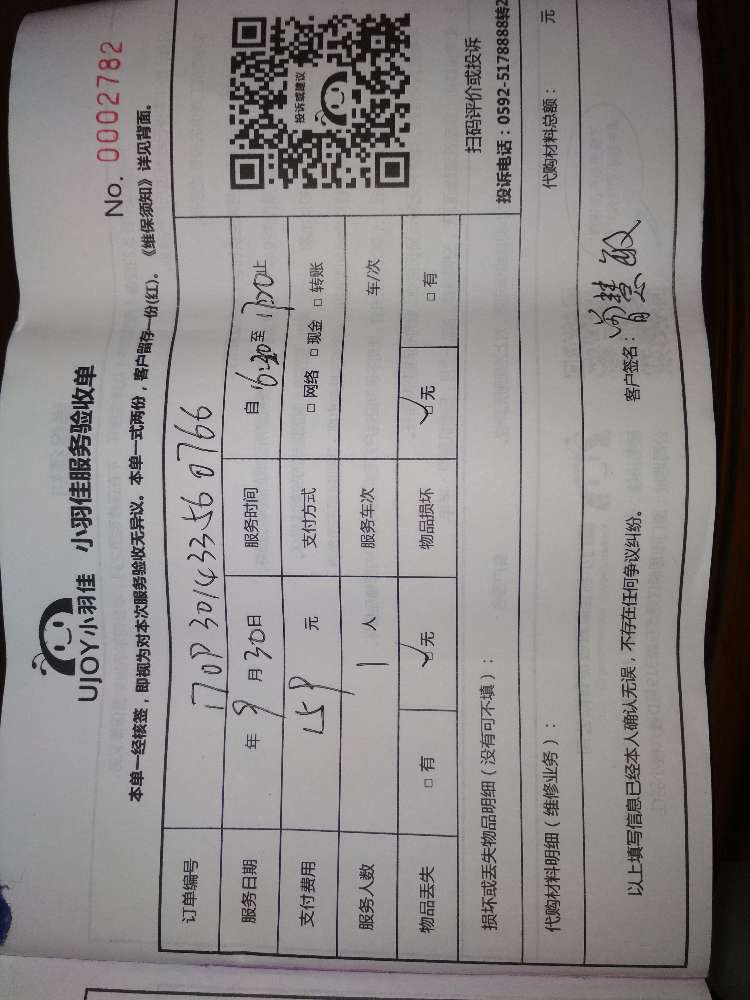 UJOY小羽佳 小羽佳服务验收单
No. 0002782
本单一经核签，即视为对本次服务验收无异议。本单一式两份，客户留存一份(红)。《维保须知》详见背面。
订单编号 170930143356 0766
服务日期 年 9 月 30 日 服务时间 自 16:30 至 17:20 止
支付费用 159 元 支付方式 □ 网络 □ 现金 □ 转账
服务人数 1 人 服务车次 车/次
物品丢失 □ 有 ☑ 无 物品损坏 ☑ 无 □ 有
投诉或建议
扫码评价或投诉
投诉电话：0592-5178888转2
损坏或丢失物品明细（没有可不填）：
代购材料明细（维修业务）： 代购材料总额： 元
以上填写信息已经本人确认无误，不存在任何争议纠纷。 客户签名：